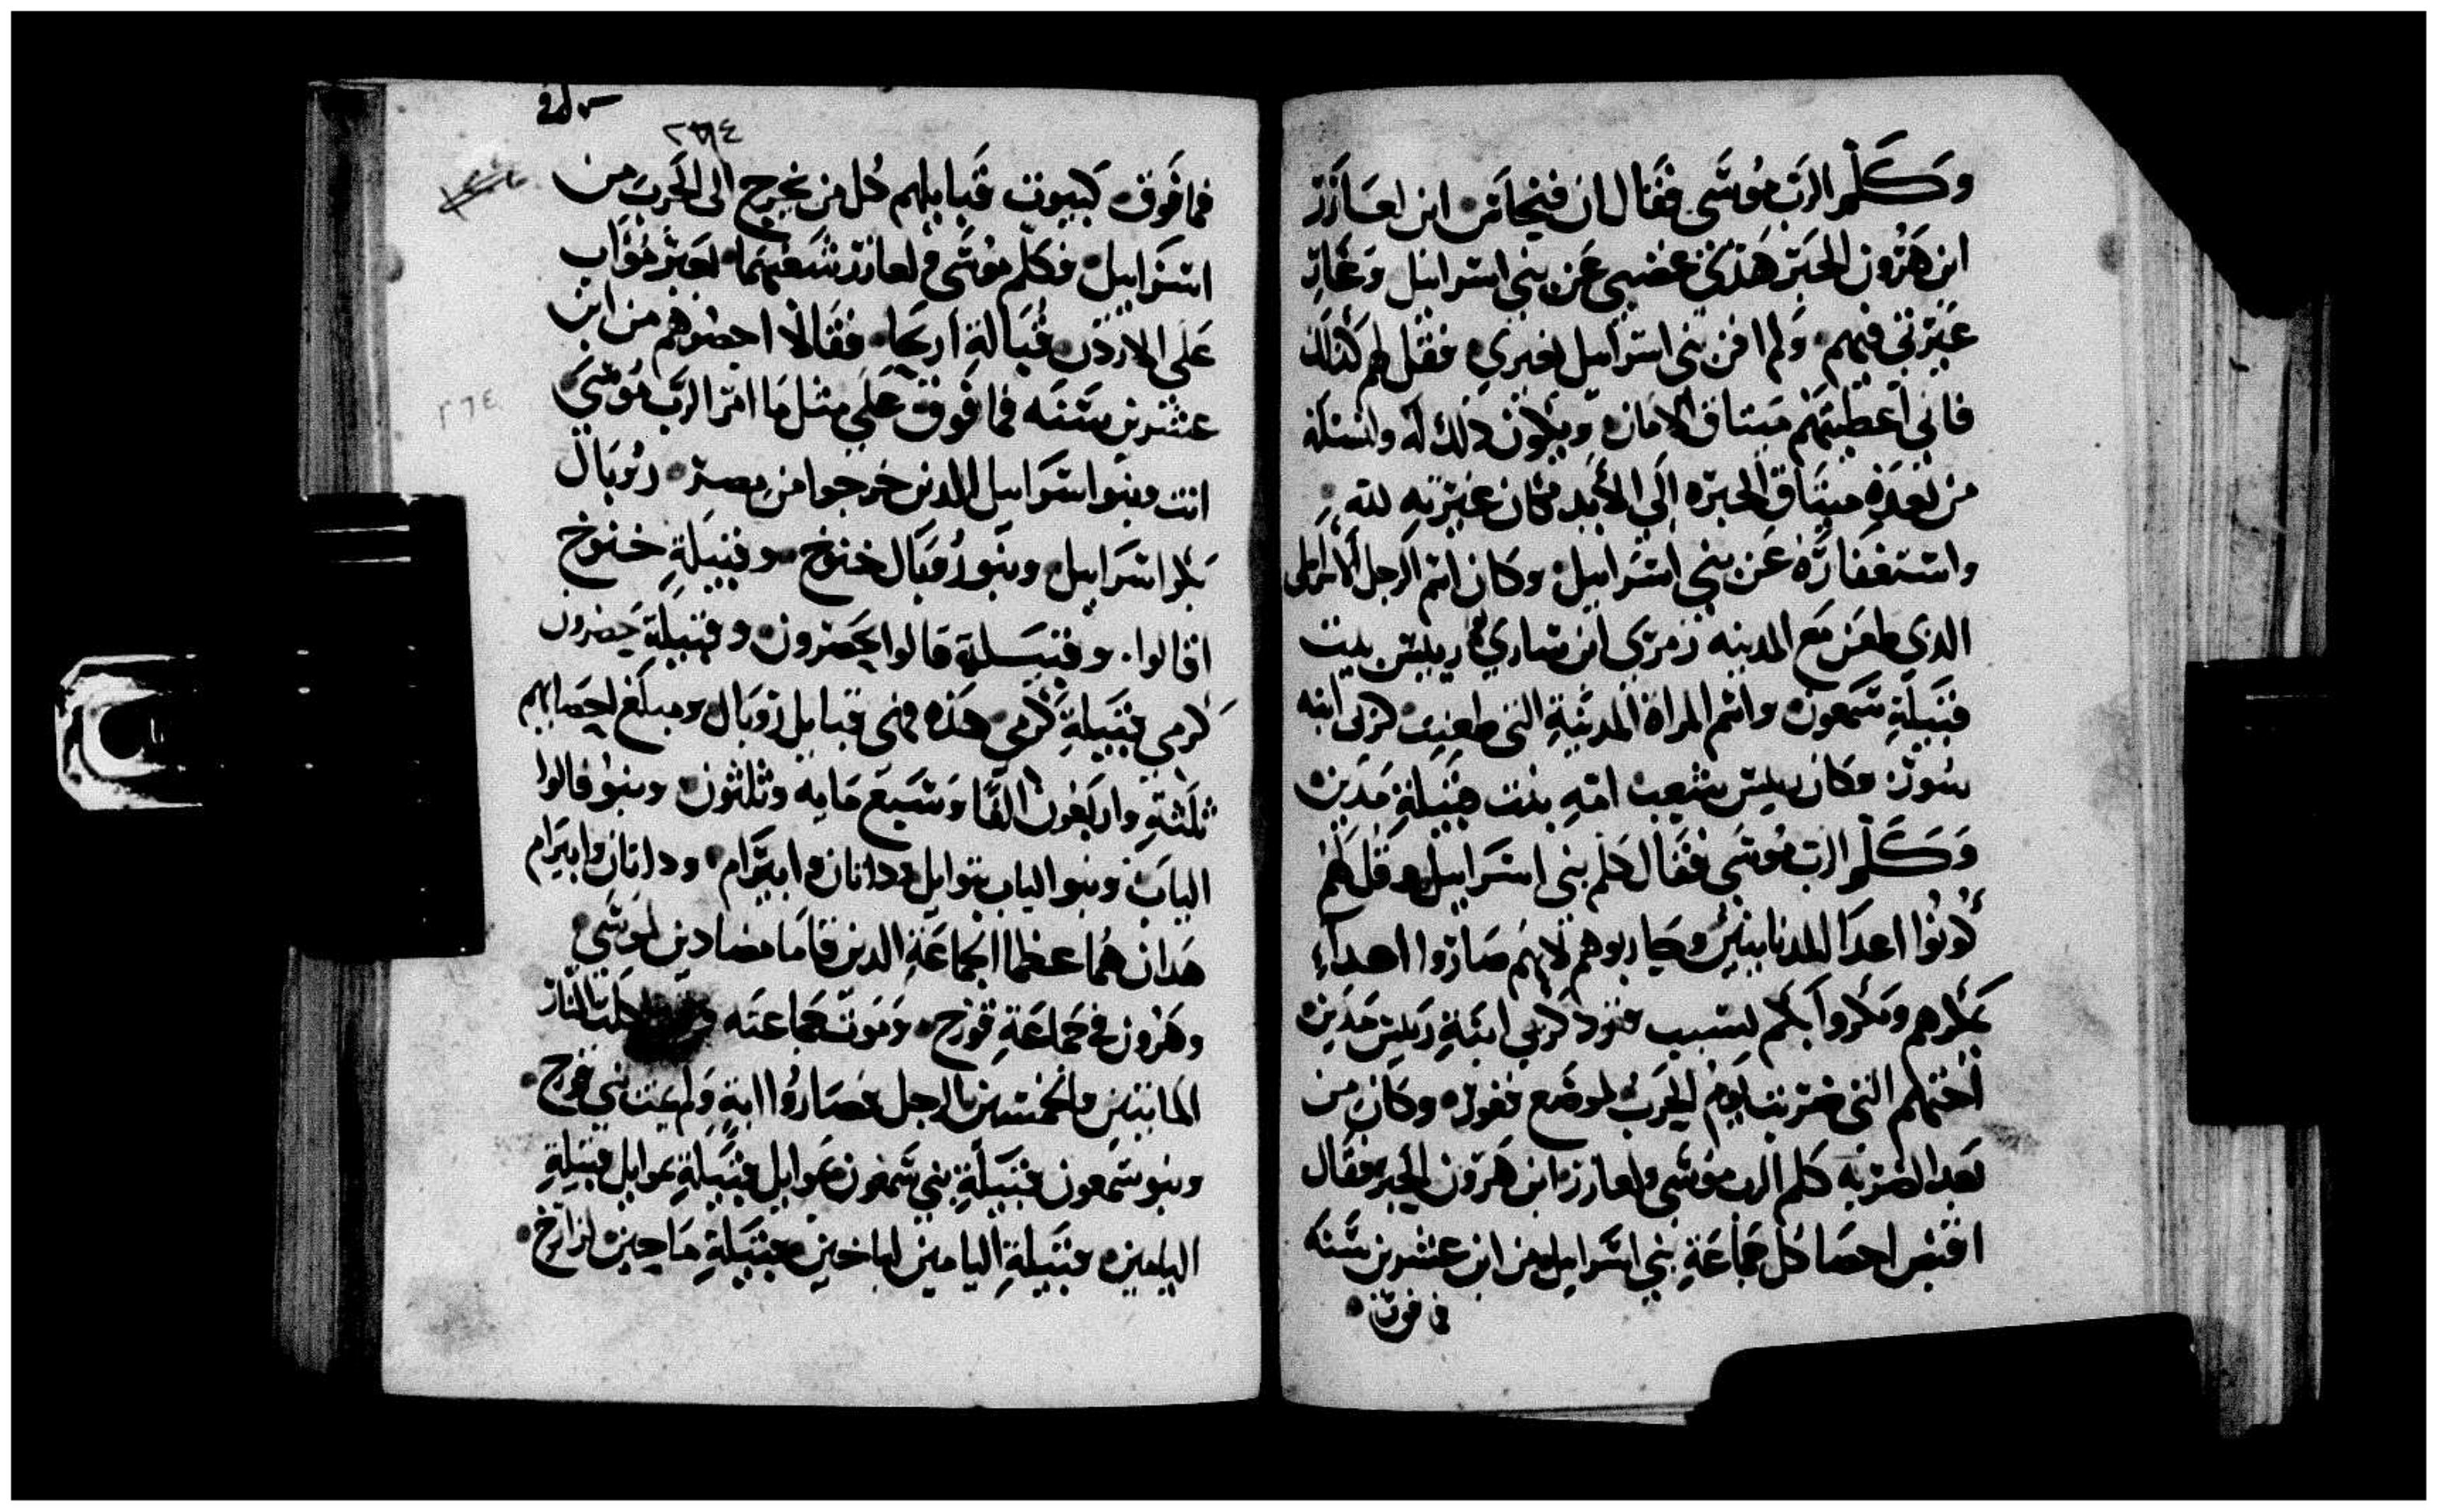 وَكَلَّمَ الرَبّ مُوسَى فقَال ان فينحاس ابن لعَازَرَ
ابن هَرُون الحَبر هَدّى غضبي عَن بني اسرَاييل وَغَارَ
غَيرَتي فيهم وَلم افن بني اسرَاييل بغيرتي فقل لهم كذلك
فاني اعطيتهم ميتاق الامَان وَيكون ذلك له ولنسله
من بعدَه ميتَاق الحبره الَي الأبد مكان غيرَته لله
واستغفارَه عَن بني اسرَاييل وكان اسم الرجل الاسراييلي
الذي طعَن مَع المدينيه زمري ابن سَاري رييس بيت
قبيَلة شَمعون واسم المراة المدينية التي طعنت كزبى ابنه
صُور وكان رييس شعب امّه بنت قبيَلة مَدين
وَكَلَّمَ الرب مُوسَى فقَال كلم بني اسرَاييل وقل لهُم
كُونُوا اعدَا للمدنايينَ وحَاربوهم لانهم صَارُوا اعداء
بمكرهم ومكروا بكم بسَبب فغور وكزبي ابنَة رييس مَدين
اختهم التي ضربت يَوم الحَرب لموضع فغور وكان من
بَعد الضربَه كلم الرب موسَى ولعازر ابن هَرون الحَبر فقَال
اقتبس احصَا كل جمَاعَة بني اسرَاييل من ابن عشرين سَنه
فما فوق
٢٧٤
فما فَوق كبيوت قبَايلهم كُل من يخرج الى الحَرب من
اسرَاييل فكلم موسَى ولعازر شَعبهما لعَبر مُوَاب
عَلى الاردن قُبَالة اريحَا فقَالا احصوهم من ابن
عشرين سَنَه فما فَوق عَلي مثل مَا امر الرَب مُوسَى
انت وبنوا اسرَاييل الذين خرجوا من مصر رُوبَال
بكر اسرَاييل وبنو رُوبَال خنوخ وقبيَلة خنوخ
افالوا وقبيَلة فالوا حصرون وقبيَلة حصرون
كرمي وقبيلة كرمي هَذه هي قبايل رُوبَال ومبلَغ احصَايهم
ثَلثَة وَاربَعون الفًا وَسَبع مَايه وثلثون وبنو فالوا
اليابَ وبنو الياب نموايل وداتان وابيرَام وداتان وابيرَام
هَذان هُما عظما الجماعَة الذين قامَا مضَادين لموسَى
وهَرون في جمَاعَة قورَح ومَوت جَماعته اكلت النار
المايتين والخمسين الرجل فصَارُوا ايةٍ وَلم يمت بني قورَح
وبنو شمعون قبيَلة بني شمعون نموايل قبيَلة نموايل قبيَلة
اليامين قبيَلة اليامين لياخين وقبيَلة يَاحين لزارَح